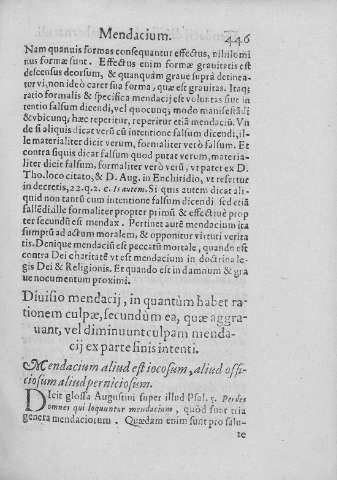 Mendacium. 446
Nam quanuis formas consequantur effectus, nihilomi
nus formæ sunt. Effectus enim formæ grauitatis est
descensus deorsum, & quanquàm graue suprà detinea-
tur vi, non ideò caret sua forma, quæ est grauitas. Itaq;
ratio formalis & specifica mendacij est voluntas siue in
tentio falsum dicendi, vel quocunq; modo manifestādi
& vbicunq; hæc reperitur, reperitur etiā mendaciū. Vn
de si aliquis dicat verū cū intentione falsum dicendi, il-
le materialiter dicit verum, formaliter verò falsum. Et
contra siquis dicat falsum quod putat verum, materia-
liter dicit falsum, formaliter verò verū, vt patet ex D.
Tho. loco citato, & D. Aug. in Enchiridio, vt refertur
in decretis, 22. q. 2. c. Is autem. Si quis autem dicat ali-
quid non tantū cum intentione falsum dicendi sed etiā
fallēdi ille formaliter propter primū & effectiuè prop
ter secundū est mendax. Pertinet autē mendacium ita
sumptū ad actum moralem, & opponitur virtuti verita
tis. Denique mendaciū est peccatū mortale, quando est
contra Dei charitatē vt est mendacium in doctrina le-
gis Dei & Religionis. Et quando est in damnum & gra
ue nocumentum proximi.
Diuisio mendacij, in quantùm habet ra-
tionem culpæ, secundùm ea, quæ aggra-
uant, vel diminuunt culpam menda-
cij ex parte finis intenti.
Mendacium aliud est iocosum, aliud offi-
ciosum aliud perniciosum.
Dicit glossa Augustini super illud Psal. 5. Perdes
omnes qui loquuntur mendacium, quòd sunt tria
genera mendaciorum. Quædam enim sunt pro salu-
te